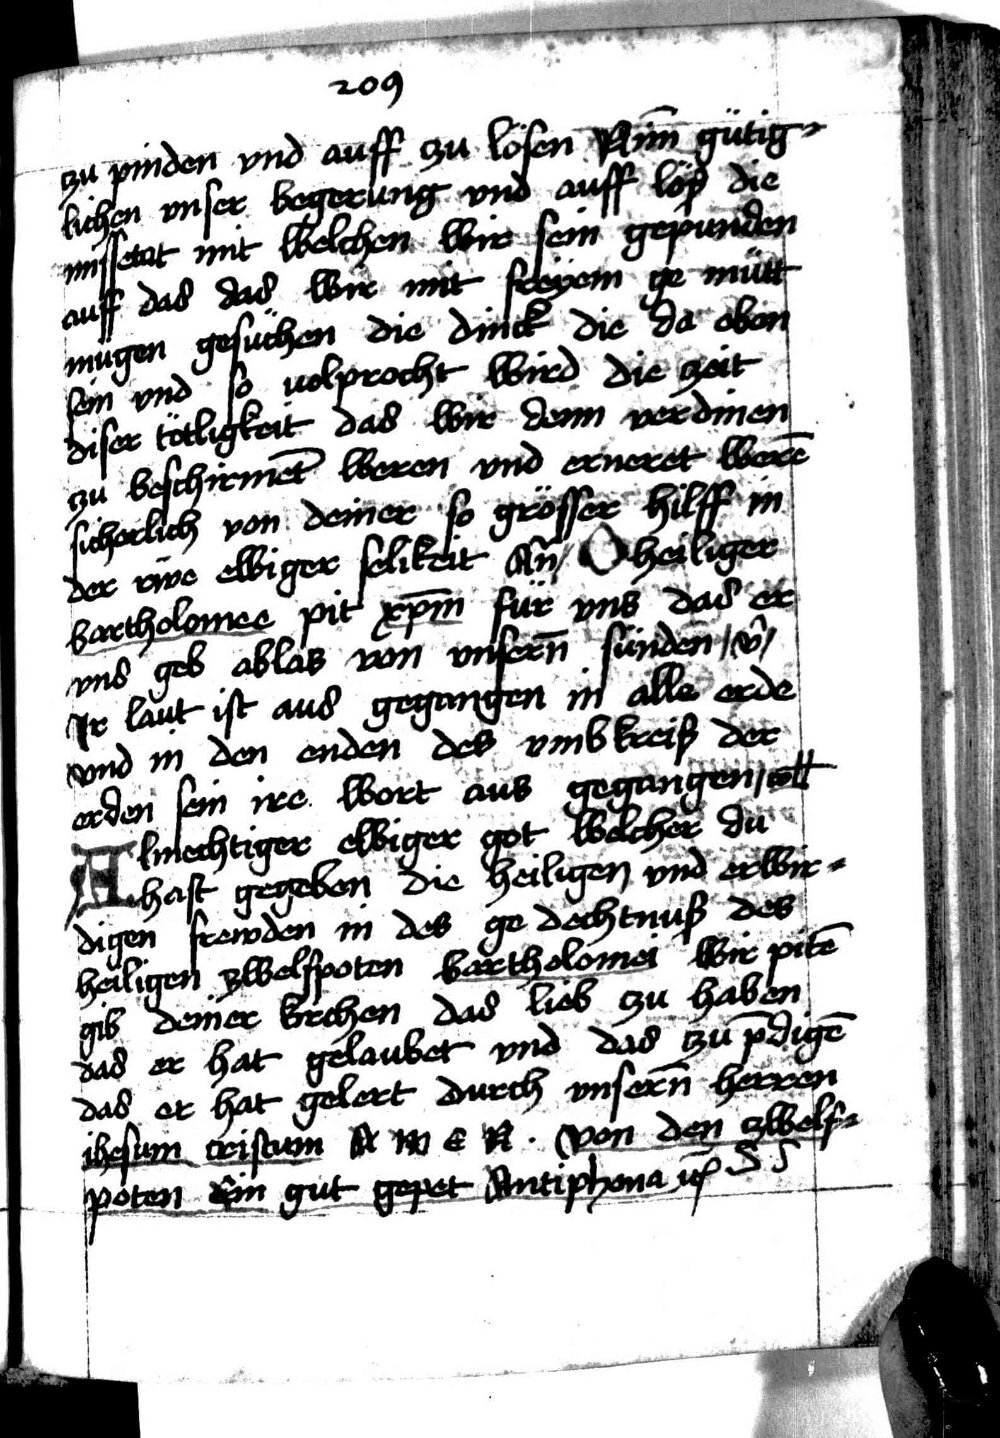 209
zu pinden vnd auff zu lösen Nim̄ gütig-
lichen vnser begerung vnd auff löß die
missetat mit welchen wir sein gepunden
auff das das wir mit freyem ge mütt
mügen gesüchen die dinck die da oben
sein vnd so volprocht wird die zeit
diser tötligkeit das wir denn verdinen
zu beschirmet weren vnd erneret werē
sicherlich von deiner so grösser hilff in
der rwe ewiger selikeit Añ / O heiliger
bartholomee pit xp̄m für vns das er
vns geb ablas von vnsern̄ sünden / v̄ /
Ir laut ist aus gegangen in alle erde
vnd in den enden des vmbkreiß der
erden sein ire wort aus gegangen / coll
Almechtiger ewiger got welcher du
hast gegeben die heiligen vnd erwir-
digen frewden in des ge dechtnuß des
heiligen zwelfpoten bartholomei wir pitē
gib deiner kirchen das lieb zu haben
das er hat gelaubet vnd das zu p̄digē
das er hat gelert durch vnsern̄ herren
ihesum cristum A M E N . Von den zwelf-
poten ein gut gepet Antiphona